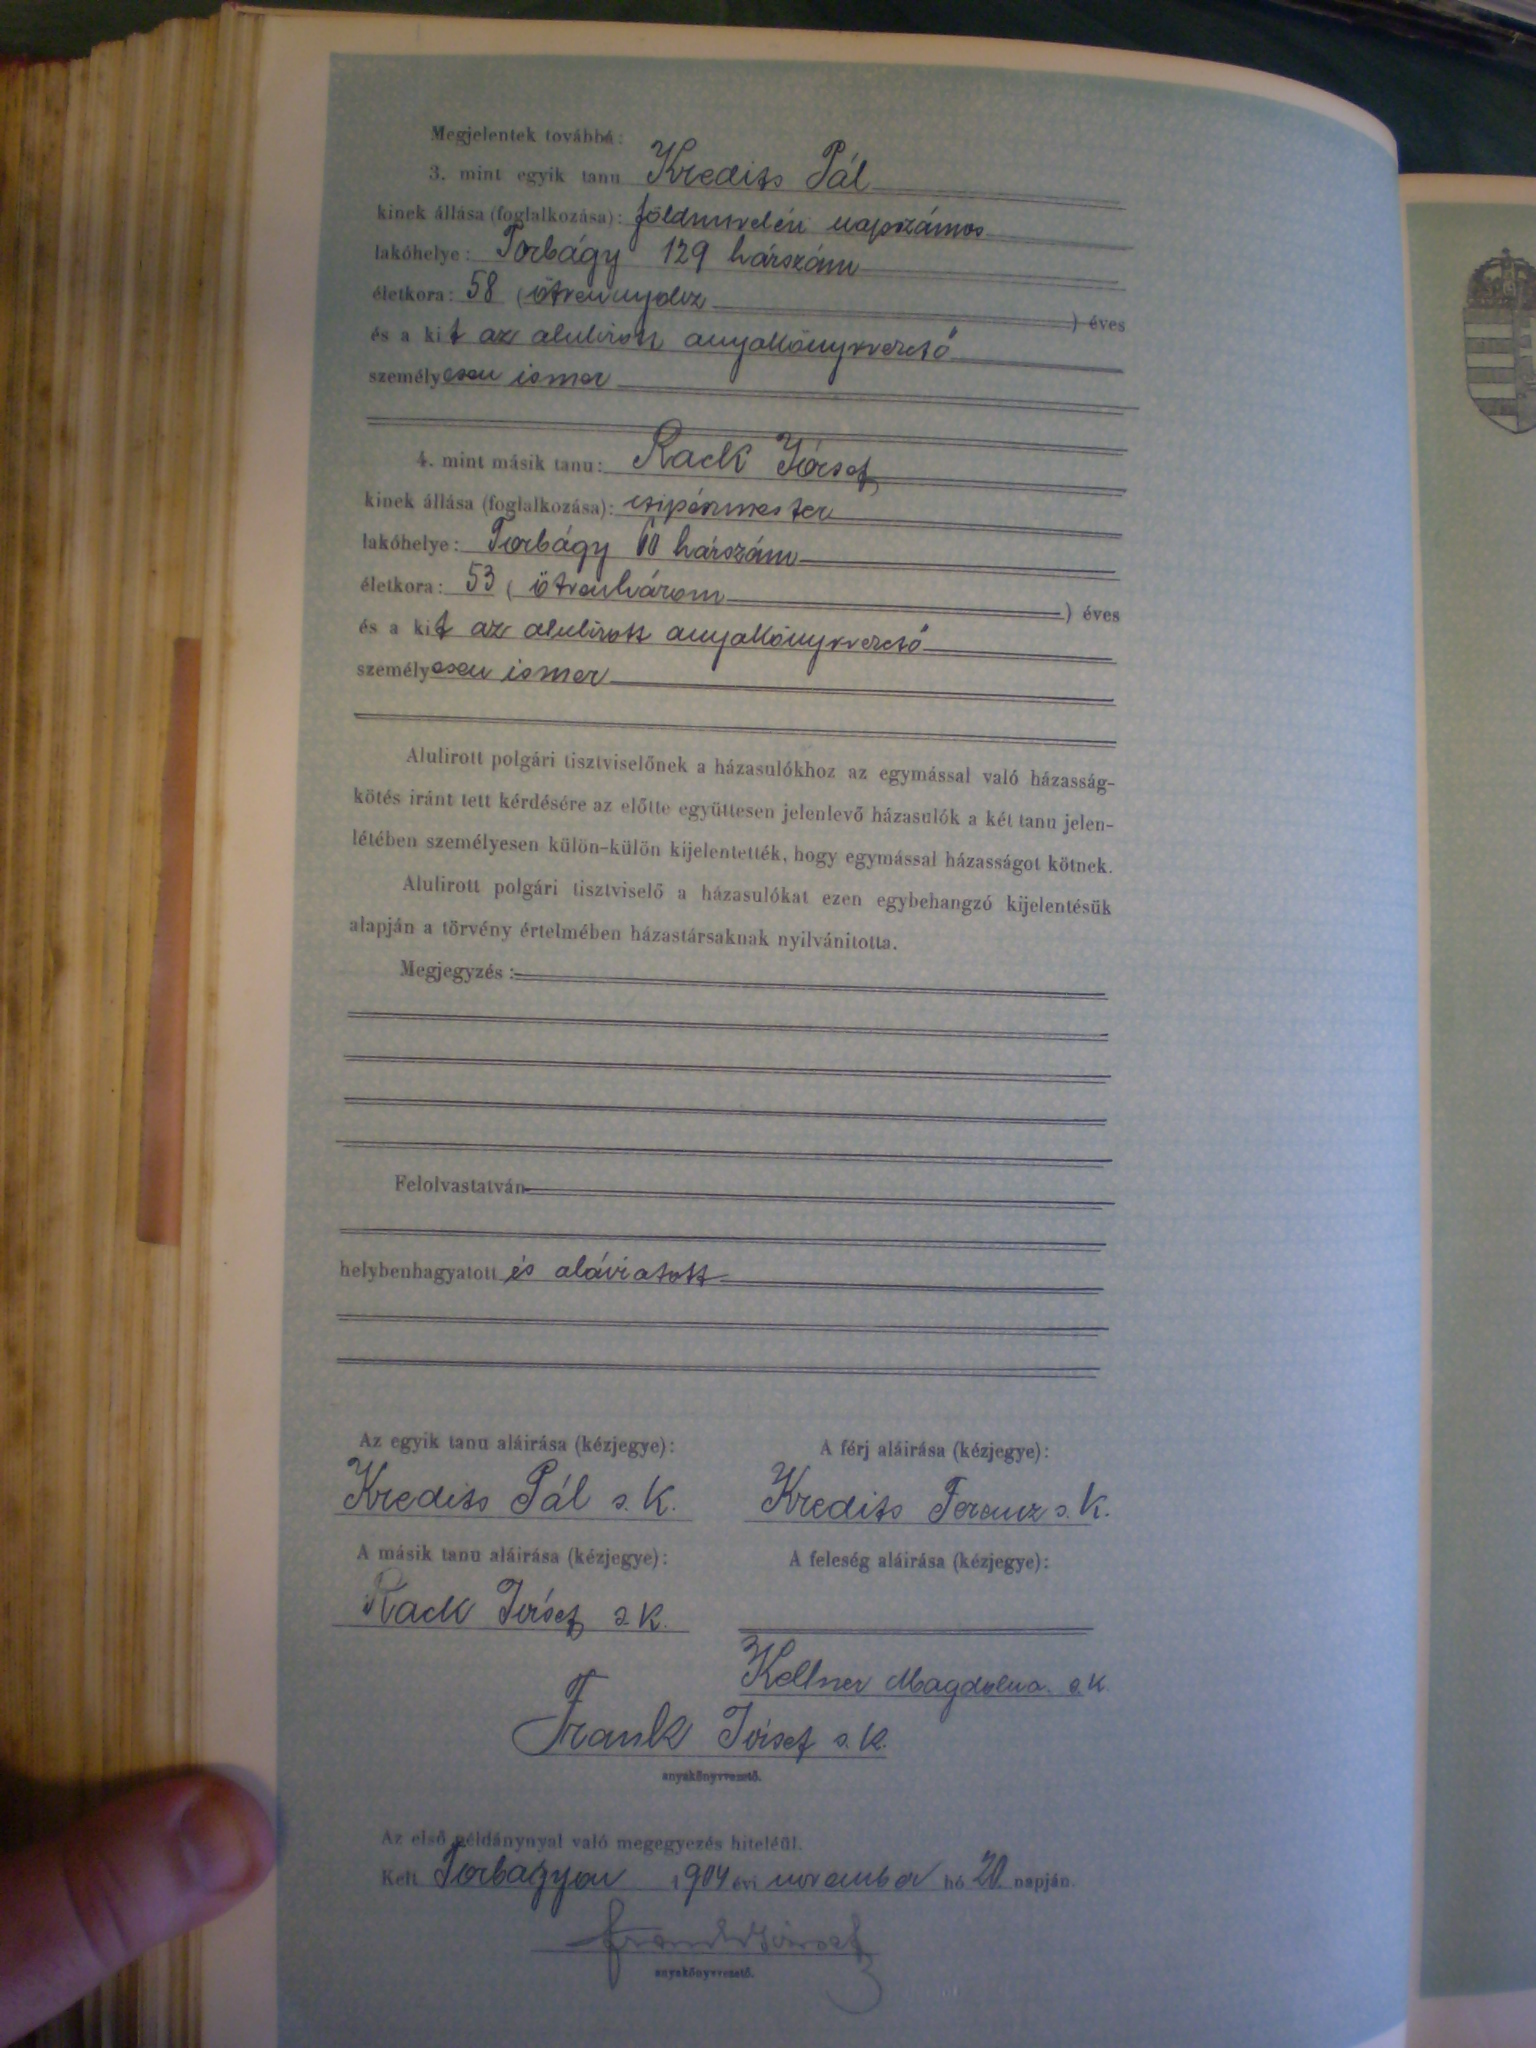 Megjelentek továbbá:
3. mint egyik tanu Kredits Pál
kinek állása (foglalkozása): földmivelési napszámos
lakóhelye: Torbágy 129 házszám
életkora: 58 (ötvennyolcz ) éves
és a kit az alulirott anyakönyvvezető
személyesen ismer
4. mint másik tanu: Rack József
kinek állása (foglalkozása): czipészmester
lakóhelye: Torbágy házszám
életkora: 53 (ötvenhárom ) éves
és a kit az alulirott anyakönyvvezető
személyesen ismer
Alulirott polgári tisztviselőnek a házasulókhoz az egymással való házasság-
kötés iránt tett kérdésére az előtte együttesen jelenlevő házasulók a két tanu jelen-
létében személyesen külön-külön kijelentették, hogy egymással házasságot kötnek.
Alulirott polgári tisztviselő a házasulókat ezen egybehangzó kijelentésük
alapján a törvény értelmében házastársaknak nyilvánitotta.
Megjegyzés:
Felolvastatván
helybenhagyatott és aláiratott
Az egyik tanu aláirása (kézjegye): A férj aláirása (kézjegye):
Kredits Pál s. k. Kredits Ferencz s. k.
A másik tanu aláirása (kézjegye): A feleség aláirása (kézjegye):
Rack József s. k.
Kellner Magdolna s. k.
Frank József s. k.
anyakönyvvezető.
Az első példánynyal való megegyezés hiteléül.
Kelt Torbágyon 1904 évi november hó 20 napján.
Frank József
anyakönyvvezető.